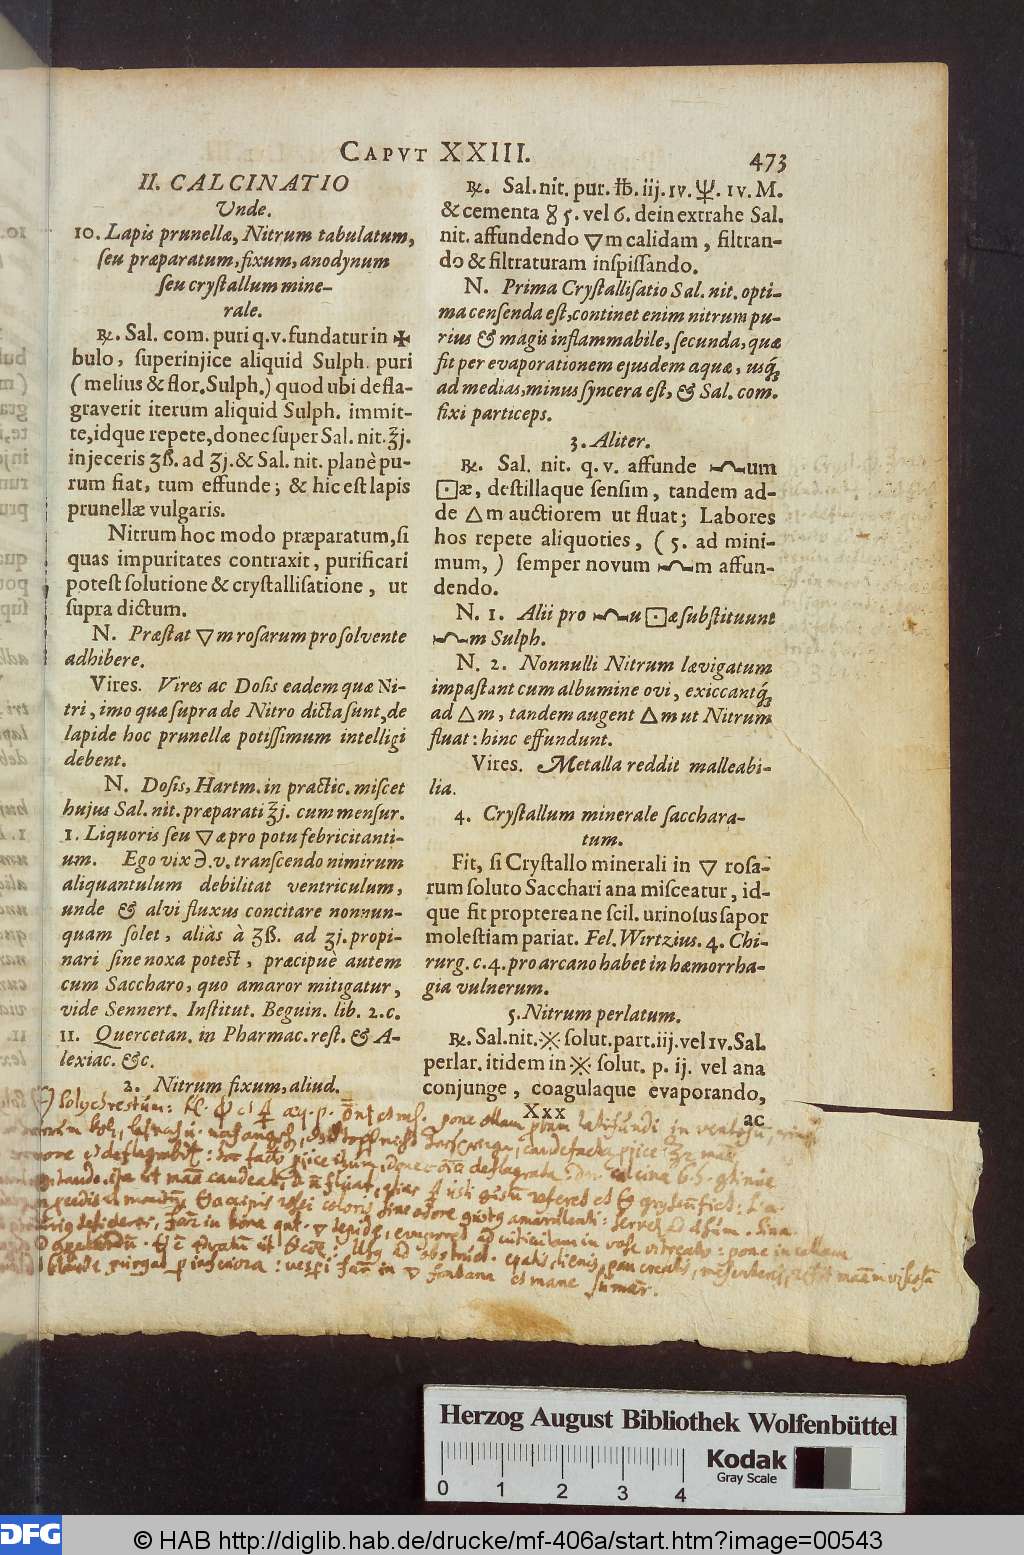 CAPVT XXIII.
473
II. CALCINATIO
Unde.
10. Lapis prunellæ, Nitrum tabulatum,
seu præparatum, fixum, anodynum
seu crystallum mine-
rale.
℞. Sal. com. puri q.v. fundatur in ✠
bulo, superinjice aliquid Sulph. puri
(melius & flor. Sulph.) quod ubi defla-
graverit iterum aliquid Sulph. immit-
te, idque repete, donec super Sal. nit. ℥j.
injeceris ʒß. ad ʒj. & Sal. nit. planè pu-
rum fiat, tum effunde; & hic est lapis
prunellæ vulgaris.
Nitrum hoc modo præparatum, si
quas impuritates contraxit, purificari
potest solutione & crystallisatione, ut
supra dictum.
N. Præstat 🜄m rosarum pro solvente
adhibere.
Vires. Vires ac Dosis eadem quæ Ni-
tri, imo quæ supra de Nitro dicta sunt, de
lapide hoc prunellæ potissimum intelligi
debent.
N. Dosis, Hartm. in practic. miscet
hujus Sal. nit. præparati ℥j. cum mensur.
1. Liquoris seu 🜄æ pro potu febricitanti-
um. Ego vix ℈.v. transcendo nimirum
aliquantulum debilitat ventriculum,
unde & alvi fluxus concitare nonnun-
quam solet, aliàs à ʒß. ad ʒj. propi-
nari sine noxa potest, præcipuè autem
cum Saccharo, quo amaror mitigatur,
vide Sennert. Institut. Beguin. lib. 2. c.
11. Quercetan. in Pharmac. rest. & A-
lexiac. &c.
2. Nitrum fixum, aliud.
℞. Sal. nit. pur. ℔. iij. iv. 🜏. iv. M.
& cementa 8 5. vel 6. dein extrahe Sal.
nit. affundendo 🜄m calidam, filtran-
do & filtraturam inspissando.
N. Prima Crystallisatio Sal. nit. opti-
ma censenda est, continet enim nitrum pu-
rius & magis inflammabile, secunda, quæ
fit per evaporationem ejusdem aquæ, usq́;
ad medias, minus syncera est, & Sal. com.
fixi particeps.
3. Aliter.
℞. Sal. nit. q. v. affunde um
🞕æ, destillaque sensim, tandem ad-
de 🜂m auctiorem ut fluat; Labores
hos repete aliquoties, (5. ad mini-
mum,) semper novum m affun-
dendo.
N. 1. Alii pro u 🞕æ substituunt
m Sulph.
N. 2. Nonnulli Nitrum lævigatum
impastant cum albumine ovi, exiccantq́;
ad 🜂m, tandem augent 🜂m ut Nitrum
fluat: hinc effundunt.
Vires. Metalla reddit malleabi-
lia.
4. Crystallum minerale sacchara-
tum.
Fit, si Crystallo minerali in 🜄 rosa-
rum soluto Sacchari ana misceatur, id-
que fit propterea ne scil. urinosus sapor
molestiam pariat. Fel. Wirtzius. 4. Chi-
rurg. c. 4. pro arcano habet in hæmorrha-
gia vulnerum.
5. Nitrum perlatum.
℞. Sal. nit. ※ solut. part. iij. vel iv. Sal.
perlar. itidem in ※ solut. p. ij. vel ana
conjunge, coagulaque evaporando,
Xxx
ac
Polychrestum:
Herzog August Bibliothek Wolfenbüttel
Kodak
Gray Scale
0 1 2 3 4
DFG
© HAB http://diglib.hab.de/drucke/mf-406a/start.htm?image=00543